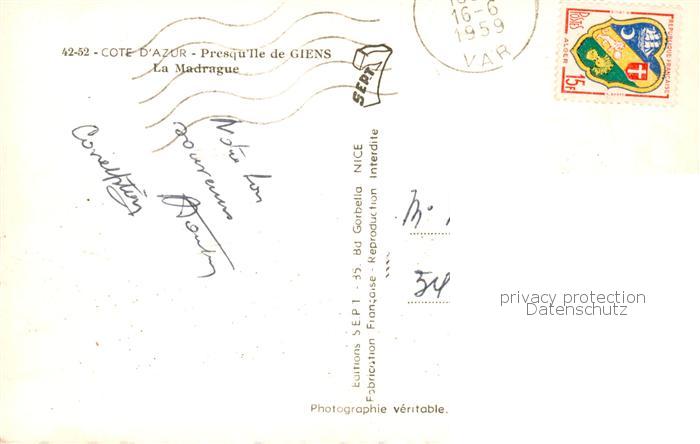 42-52 - COTE D'AZUR - Presqu'Ile de GIENS
La Madrague
SEPT
16-6
1959
VAR
POSTES
REPUBLIQUE FRANÇAISE
ALGER
15F
Notre bon
souvenir
Conception
Editions SEPT - 35, Bd Gorbella NICE
Fabrication Française - Reproduction Interdite
34
privacy protection
Datenschutz
Photographie véritable.